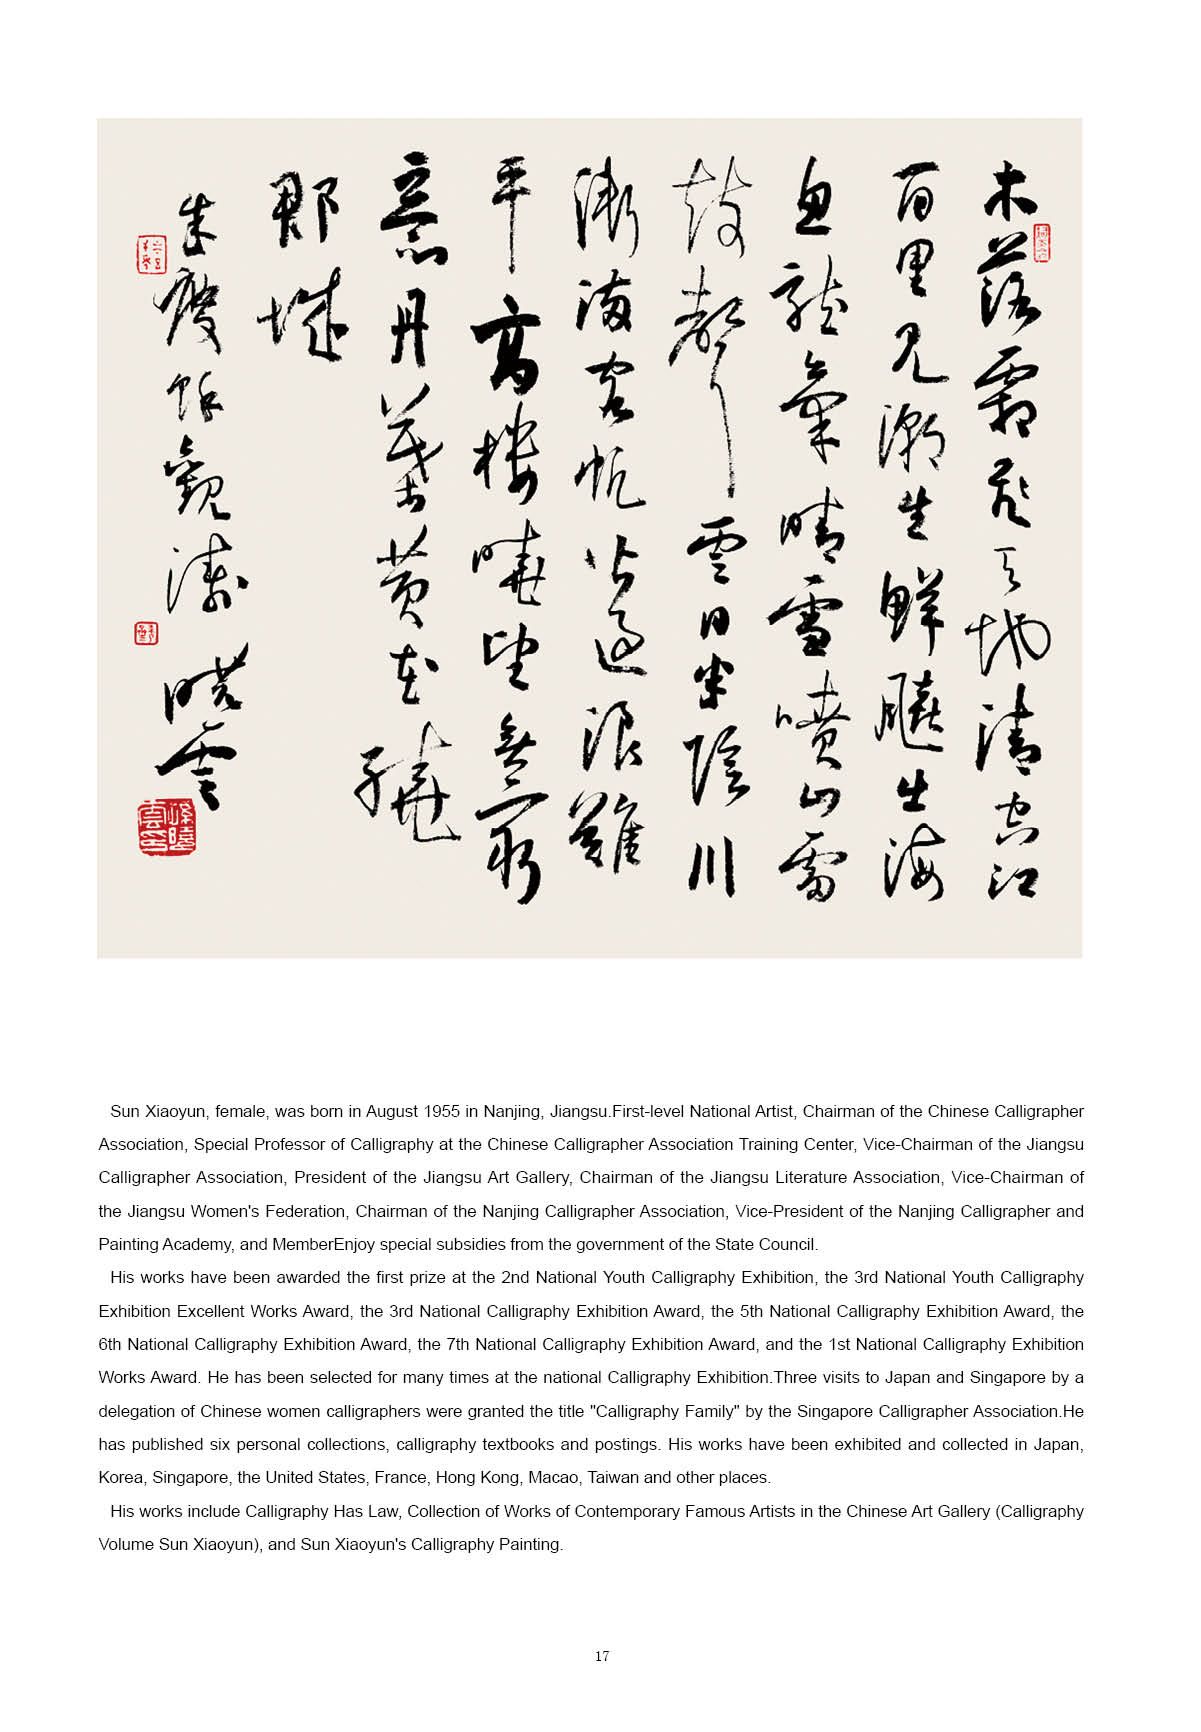 木落霜飛天地清空江
百里見潮生鮮飈出海
魚龍氣晴雪噴山雷
鼓聲雲日半陰川
漸滿客帆皆過浪難
平高樓曉望無窮
意丹葉黃花繞
郡城
朱慶餘觀濤 曉雲
孫曉雲印
Sun Xiaoyun, female, was born in August 1955 in Nanjing, Jiangsu.First-level National Artist, Chairman of the Chinese Calligrapher
Association, Special Professor of Calligraphy at the Chinese Calligrapher Association Training Center, Vice-Chairman of the Jiangsu
Calligrapher Association, President of the Jiangsu Art Gallery, Chairman of the Jiangsu Literature Association, Vice-Chairman of
the Jiangsu Women's Federation, Chairman of the Nanjing Calligrapher Association, Vice-President of the Nanjing Calligrapher and
Painting Academy, and MemberEnjoy special subsidies from the government of the State Council.
His works have been awarded the first prize at the 2nd National Youth Calligraphy Exhibition, the 3rd National Youth Calligraphy
Exhibition Excellent Works Award, the 3rd National Calligraphy Exhibition Award, the 5th National Calligraphy Exhibition Award, the
6th National Calligraphy Exhibition Award, the 7th National Calligraphy Exhibition Award, and the 1st National Calligraphy Exhibition
Works Award. He has been selected for many times at the national Calligraphy Exhibition.Three visits to Japan and Singapore by a
delegation of Chinese women calligraphers were granted the title "Calligraphy Family" by the Singapore Calligrapher Association.He
has published six personal collections, calligraphy textbooks and postings. His works have been exhibited and collected in Japan,
Korea, Singapore, the United States, France, Hong Kong, Macao, Taiwan and other places.
His works include Calligraphy Has Law, Collection of Works of Contemporary Famous Artists in the Chinese Art Gallery (Calligraphy
Volume Sun Xiaoyun), and Sun Xiaoyun's Calligraphy Painting.
17